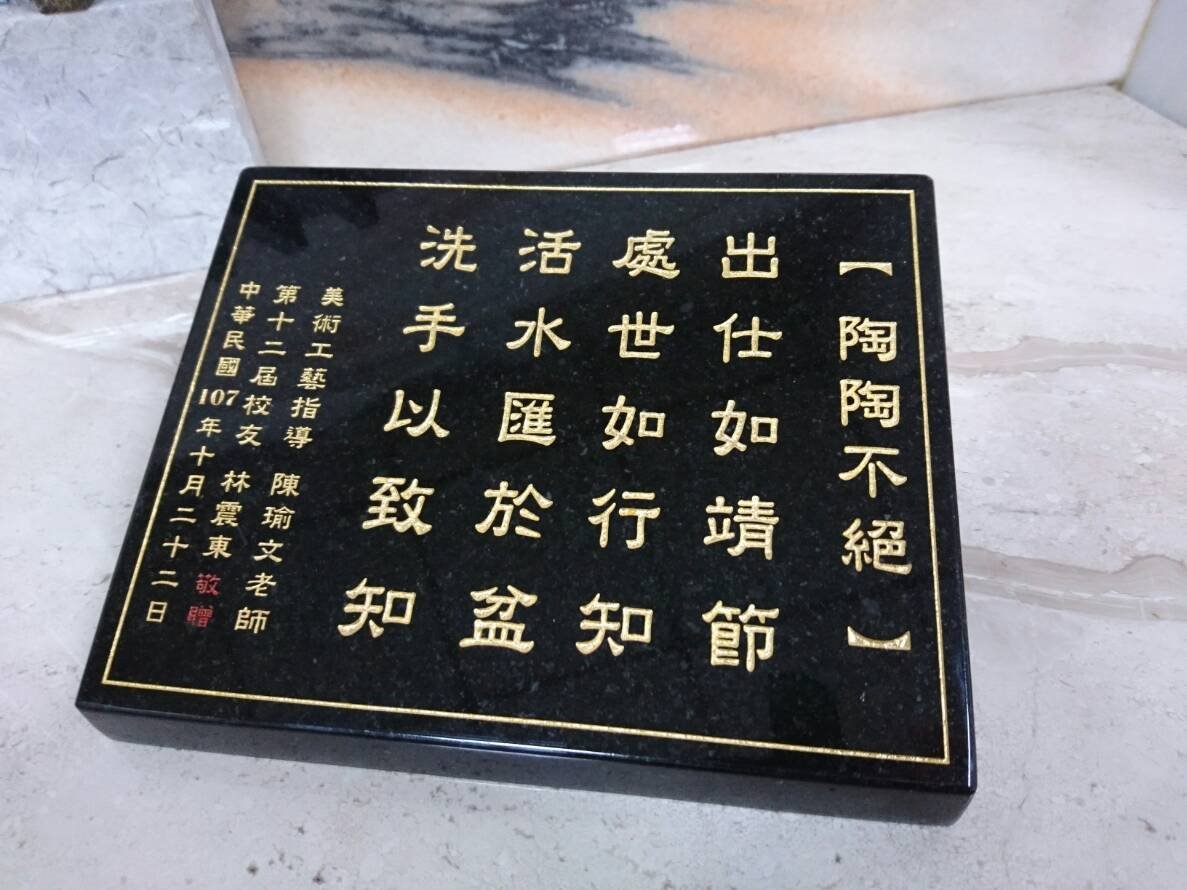 【陶陶不絕】
出仕如靖節
處世如行知
活水匯於盆
洗手以致知
美術工藝指導 陳瑜文老師
第十二屆校友 林震東 敬贈
中華民國107年十月二十二日